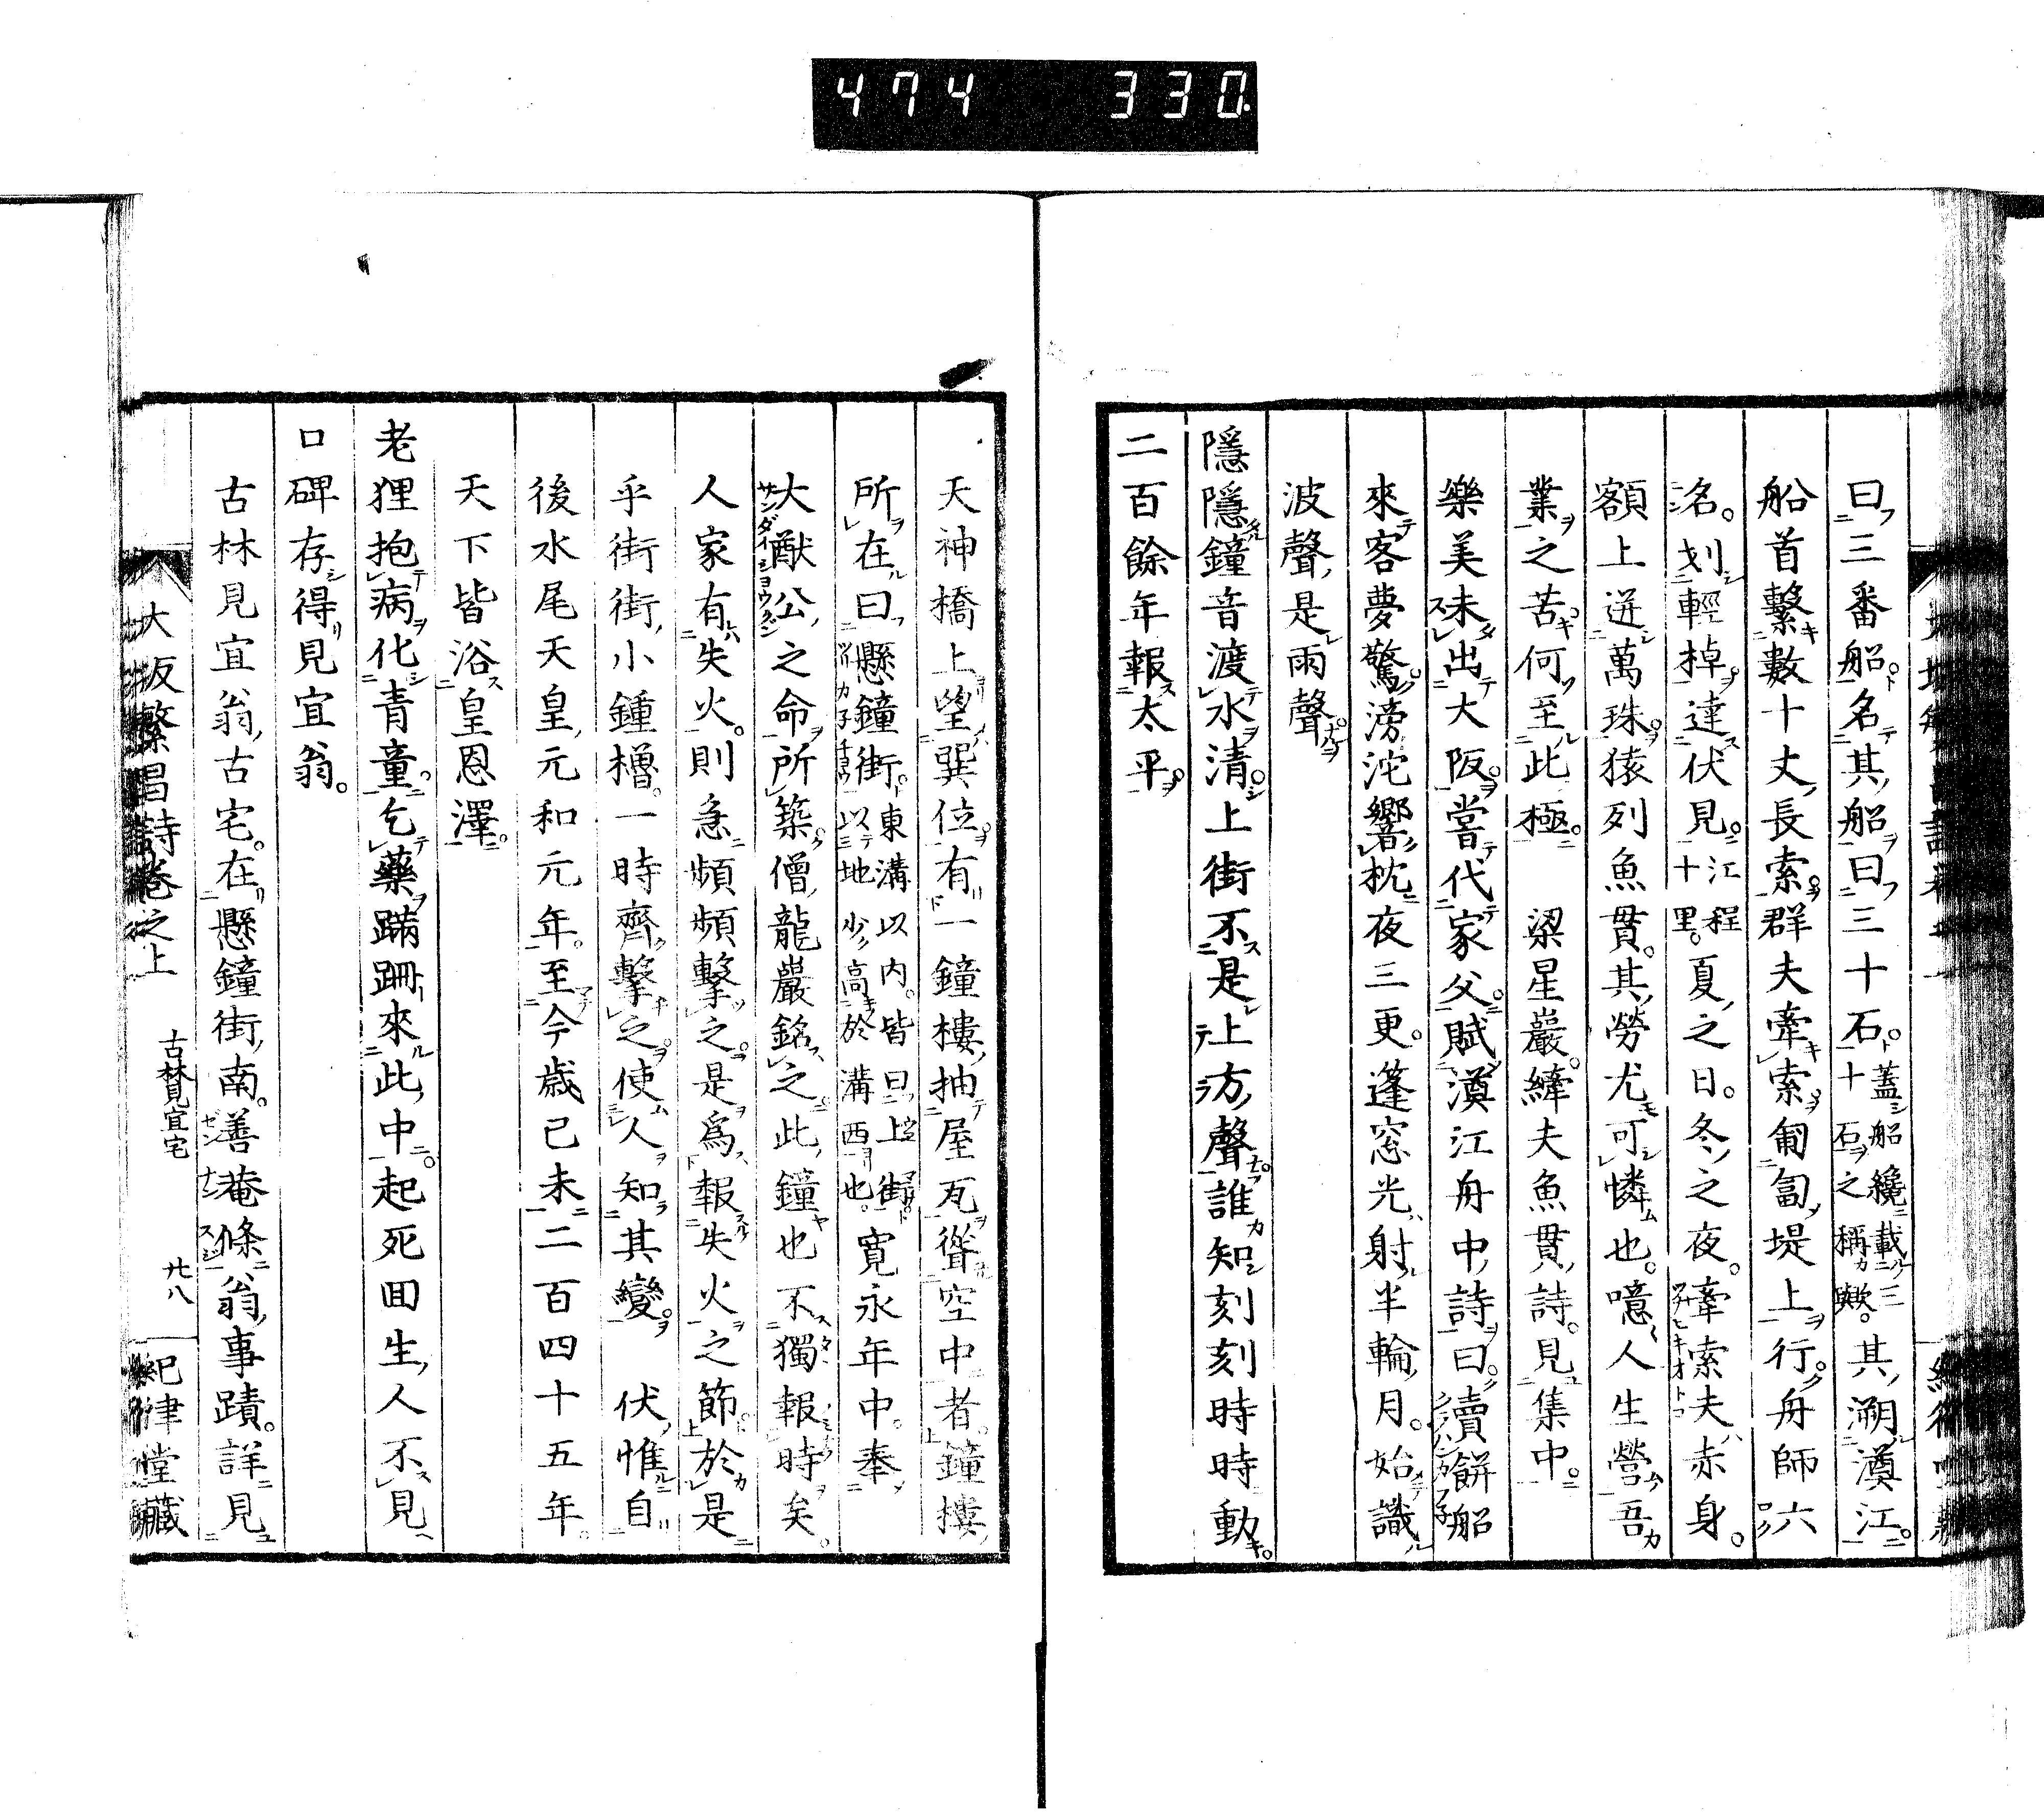 474 330
曰三番船名其船曰三十石蓋船纔載三十石之稱歟其溯澱江
船首繫數十丈長索群夫牽索匍匐堤上行舟師六
名刬輕棹達伏見江程十里夏之日冬之夜牽索夫赤身
額上迸萬珠猿列魚貫其勞尤可憐也噫人生營吾
業之苦何至此極 梁星巖縴夫魚貫詩見集中
樂美未出大阪嘗代家父賦澱江舟中詩曰賣餅船
來客夢驚滂沱響枕夜三更蓬窓光射半輪月始識
波聲是雨聲
隱隱鐘音渡水清上街不是上方聲誰知刻刻時時動
二百餘年報太平
天神橋上望巽位有一鐘樓抽屋瓦聳空中者鐘樓
所在曰懸鐘街東溝以內皆曰上街以地少高於溝西也寬永年中奉
大猷公之命所築僧龍巖銘之此鐘也不獨報時矣
人家有失火則急頻頻擊之是爲報失火之節於是
乎街街小鐘櫓一時齊擊之使人知其變 伏惟自
後水尾天皇元和元年至今歲已未二百四十五年
天下皆浴皇恩澤
老狸抱病化青童乞藥蹣跚來此中起死回生人不見
口碑存得見宜翁
古林見宜翁古宅在懸鐘街南善菴條翁事蹟詳見
大阪繁昌詩卷之上 古林見宜宅 廿八 紀律堂藏